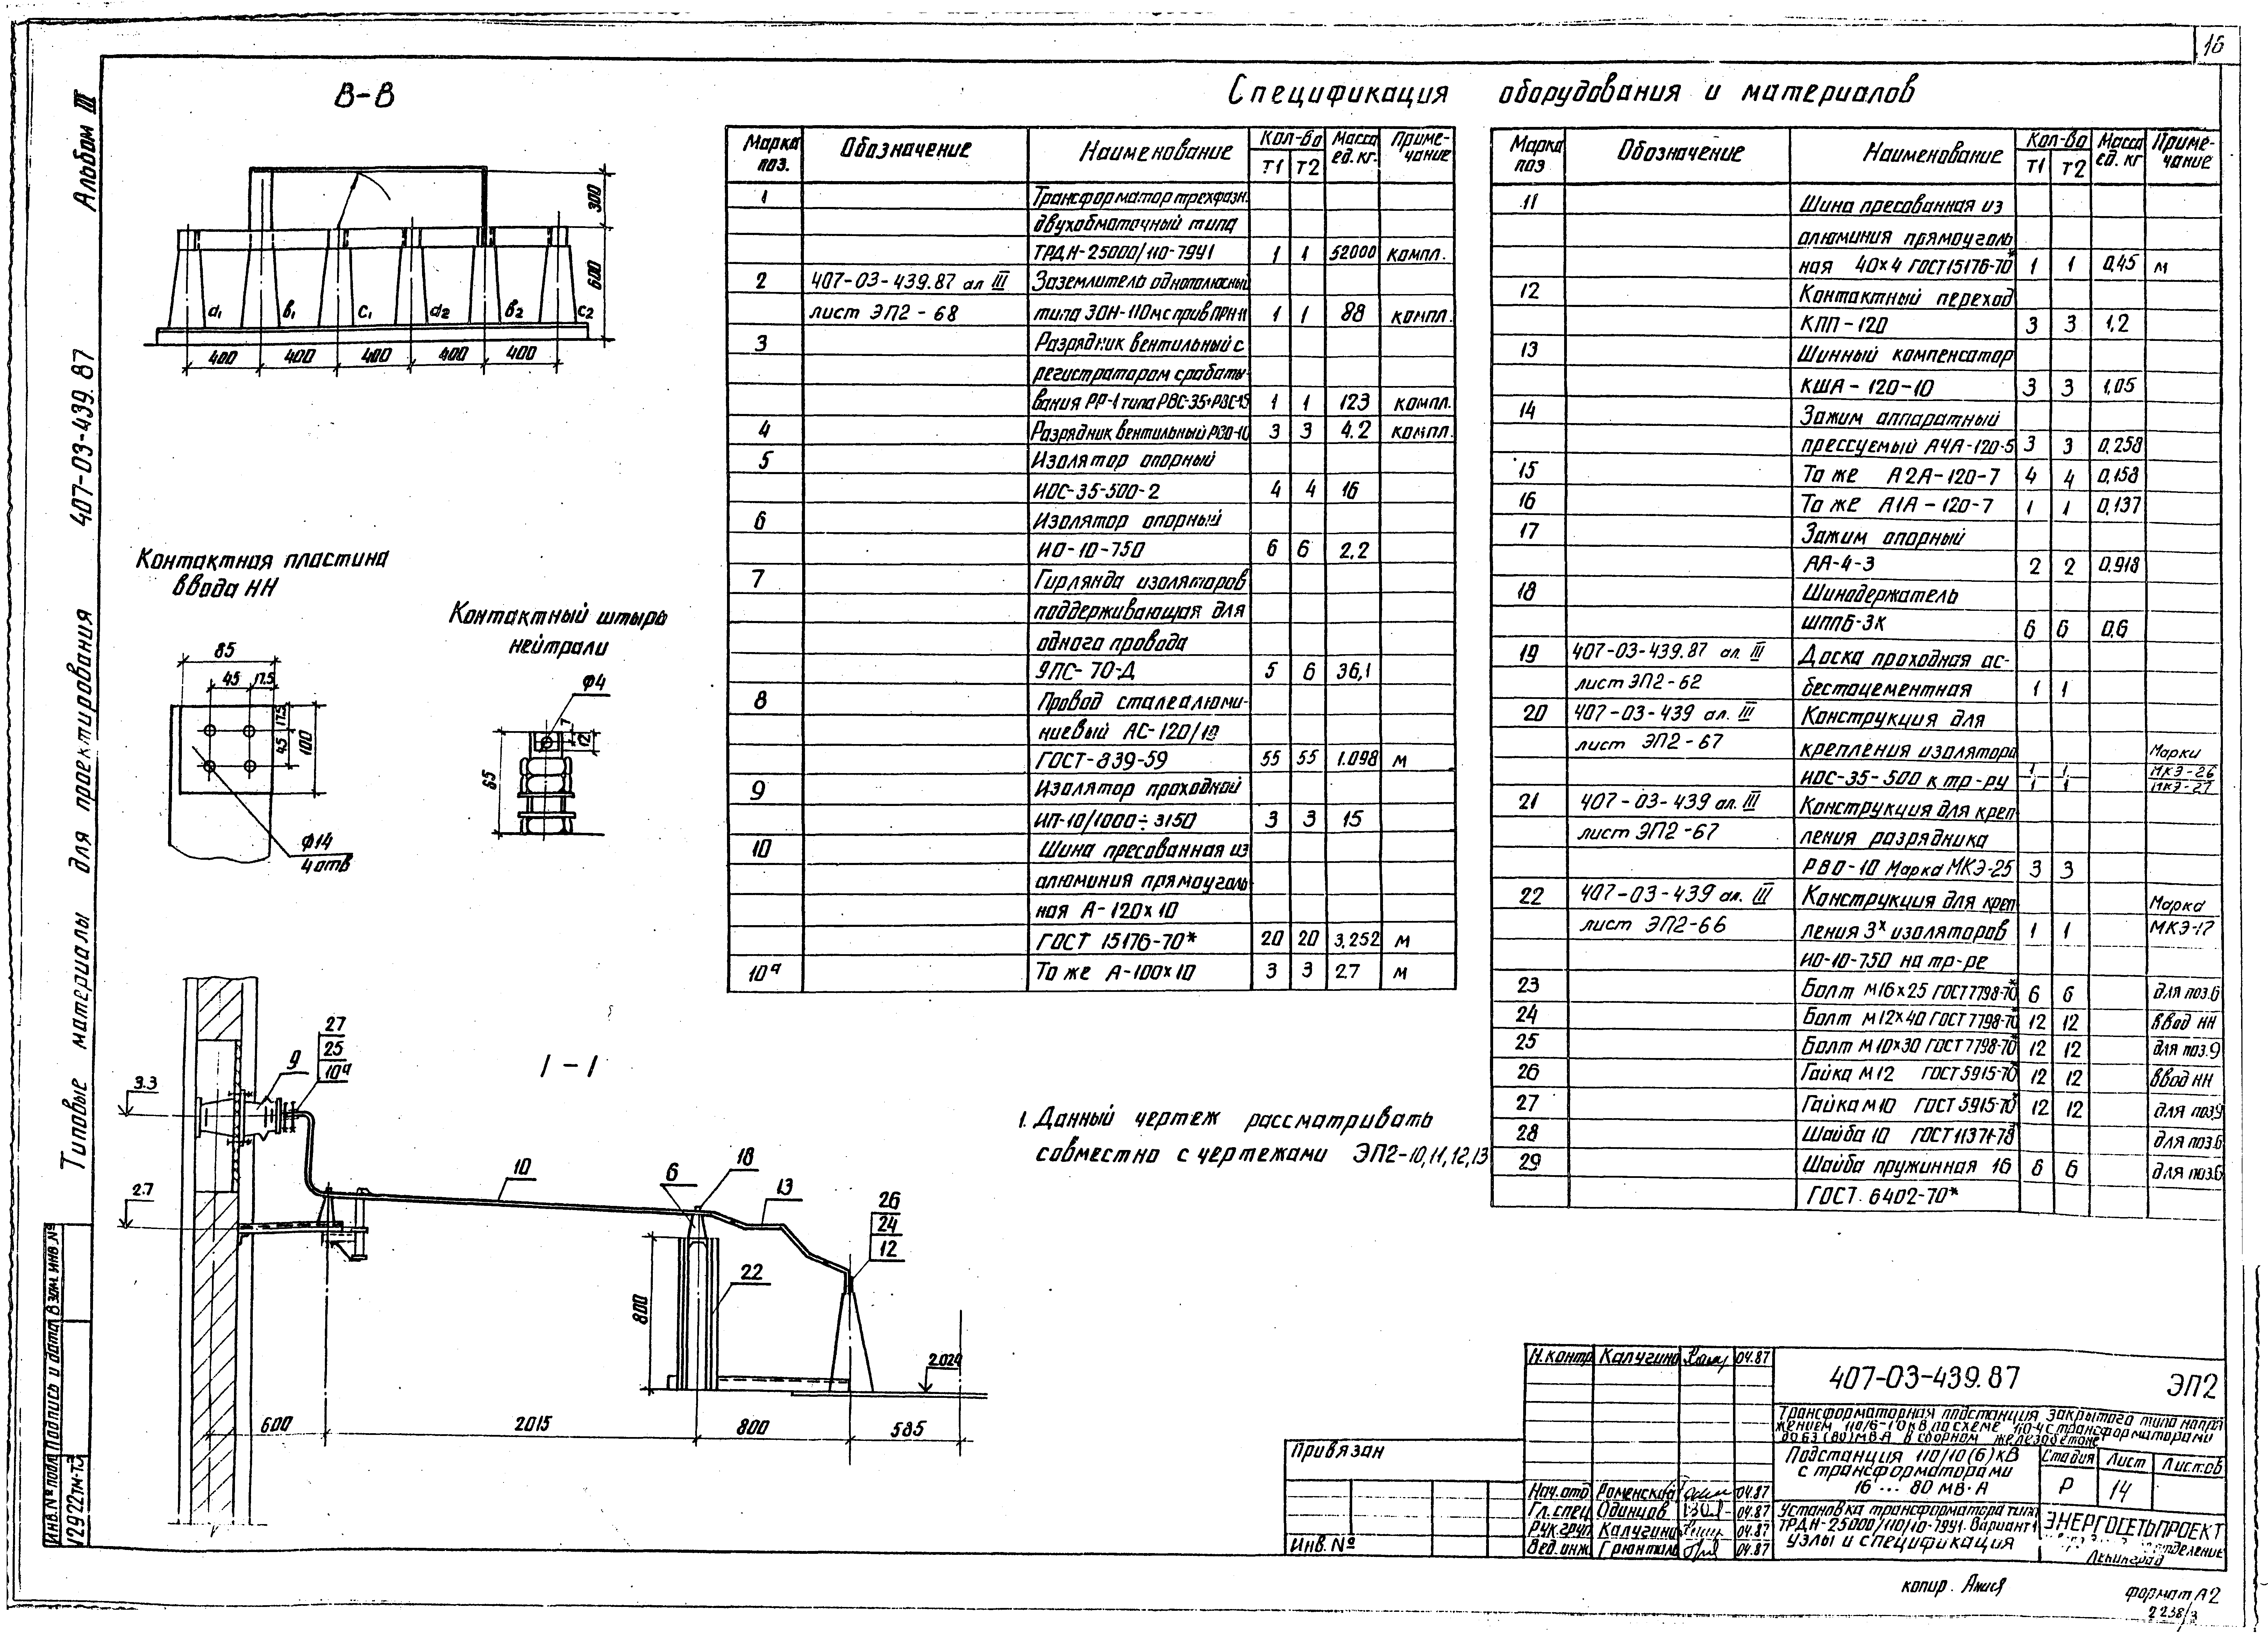 16
Альбом III
407-03-439.87
Типовые материалы для проектирования
В-В
300
600
а₁ в₁ с₁ а₂ в₂ с₂
400 400 400 400 400
Контактная пластина
ввода НН
85
45 17.5
17.5
45
100
Ф14
4 отв
Контактный штырь
нейтрали
Ф4
7
12
65
Спецификация оборудования и материалов
Марка поз. Обозначение Наименование Кол-во Т1 Т2 Масса ед. кг. Примечание
1 Трансформатор трехфазн.
двухобмоточный типа
ТРДН-25000/110-79У1 1 1 52000 компл.
2 407-03-439.87 ал III Заземлитель однополюсный
лист ЭП2-68 типа ЗОН-110м с прив ПРН-11 1 1 88 компл.
3 Разрядник вентильный с
регистратором срабаты-
вания РР-1 типа РВС-35+РВС-15 1 1 123 компл.
4 Разрядник вентильный РВО-10 3 3 4.2 компл.
5 Изолятор опорный
ИОС-35-500-2 4 4 16
6 Изолятор опорный
ИО-10-750 6 6 2.2
7 Гирлянда изоляторов
поддерживающая для
одного провода
9ПС-70-Д 5 6 36,1
8 Провод сталеалюми-
ниевый АС-120/19
ГОСТ-839-59 55 55 1.098 м
9 Изолятор проходной
ИП-10/1000÷3150 3 3 15
10 Шина пресованная из
алюминия прямоуголь
ная А-120х10
ГОСТ 15176-70* 20 20 3,252 м
10ª То же А-100х10 3 3 2.7 м
Марка поз Обозначение Наименование Кол-во Т1 Т2 Масса ед. кг Примечание
11 Шина пресованная из
алюминия прямоуголь
ная 40х4 ГОСТ 15176-70* 1 1 0,45 м
12 Контактный переход
КПП-120 3 3 1,2
13 Шинный компенсатор
КША-120-10 3 3 1,05
14 Зажим аппаратный
прессуемый А4А-120-5 3 3 0,258
15 То же А2А-120-7 4 4 0,158
16 То же А1А-120-7 1 1 0,137
17 Зажим опорный
АА-4-3 2 2 0.918
18 Шинодержатель
ШППБ-3К 6 6 0,6
19 407-03-439.87 ал. III Доска проходная ас-
лист ЭП2-62 бестоцементная 1 1
20 407-03-439 ал. III Конструкция для
лист ЭП2-67 крепления изолятора Марки
ИОС-35-500 к тр-ру 1 1 МКЭ-26
1 1 МКЭ-27
21 407-03-439 ал. III Конструкция для креп
лист ЭП2-67 ления разрядника
РВО-10 Марка МКЭ-25 3 3
22 407-03-439 ал. III Конструкция для креп Марка
лист ЭП2-66 ления 3ˣ изоляторов 1 1 МКЭ-17
ИО-10-750 на тр-ре
23 Болт М16х25 ГОСТ 7798-70* 6 6 для поз.6
24 Болт М12х40 ГОСТ 7798-70* 12 12 ввод НН
25 Болт М10х30 ГОСТ 7798-70* 12 12 для поз.9
26 Гайка М12 ГОСТ 5915-70* 12 12 ввод НН
27 Гайка М10 ГОСТ 5915-70* 12 12 для поз9
28 Шайба 10 ГОСТ 11371-78* для поз.6
29 Шайба пружинная 16 6 6 для поз.6
ГОСТ. 6402-70*
1-1
3.3
2.7
9
27
25
10ª
10
6
18
13
26
24
12
22
800
2.024
600 2015 800 585
1. Данный чертеж рассматривать
совместно с чертежами ЭП2-10,11,12,13
Н.контр Калугина 04.87
Нач.отд Роменский 04.87
Гл.спец Одинцов 04.87
Рук.груп Калугина 04.87
Вед.инж. 04.87
407-03-439.87 ЭП2
Трансформаторная подстанция закрытого типа напря
жением 110/6-10кВ по схеме 110-4 с трансформаторами
до 63 (80) МВ·А в сборном железобетоне
Подстанция 110/10(6)кВ
с трансформаторами
16 ... 80 МВ·А
Стадия Лист Листов
Р 14
Установка трансформатора типа
ТРДН-25000/110/10-79У1. Вариант 1.
Узлы и спецификация
ЭНЕРГОСЕТЬПРОЕКТ
отделение
Ленинград
Привязан
Инв. №
Инв.№ подл. Подпись и дата Взам. инв. №
12922тм-т3
копир.
формат А2
2238/3